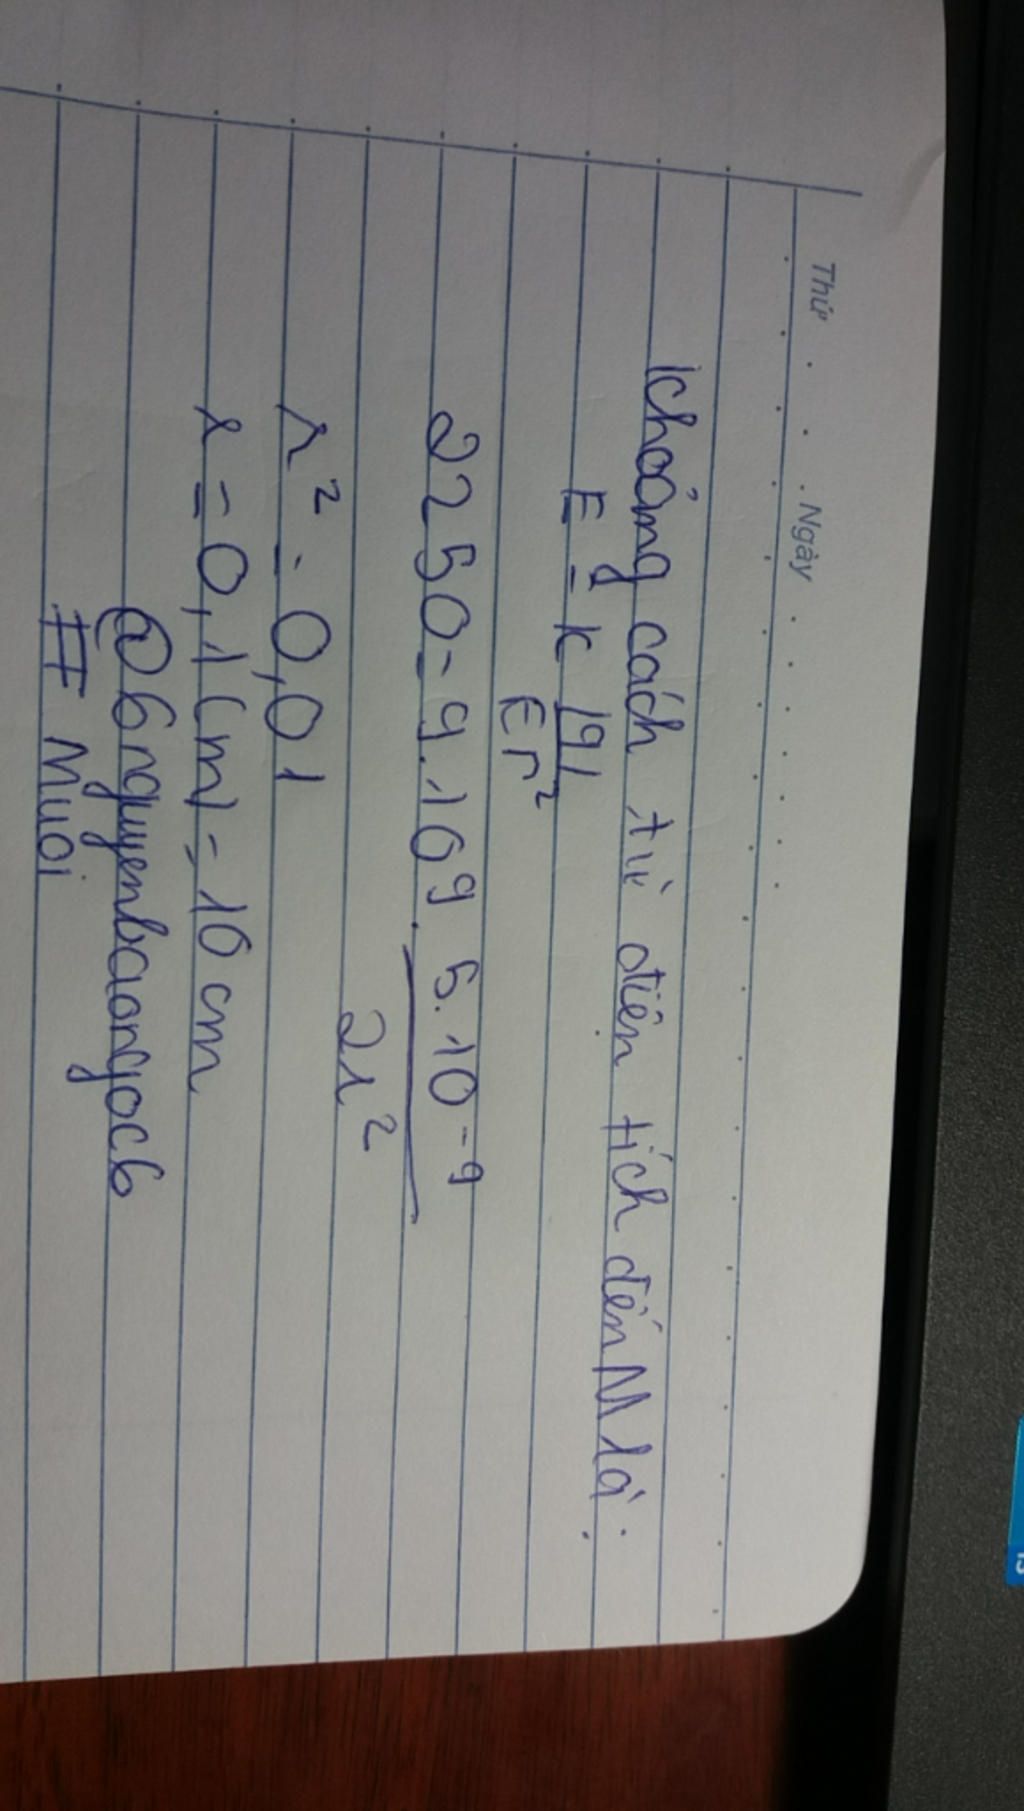 Thứ Ngày
khoảng cách từ điện tích đến M là:
E = k |q| / εr²
2250 = 9.10⁹. 5.10⁻⁹ / 2r²
r² = 0,01
r = 0,1(m) = 10 cm
@6nguyenbaongoc6
# Muoi